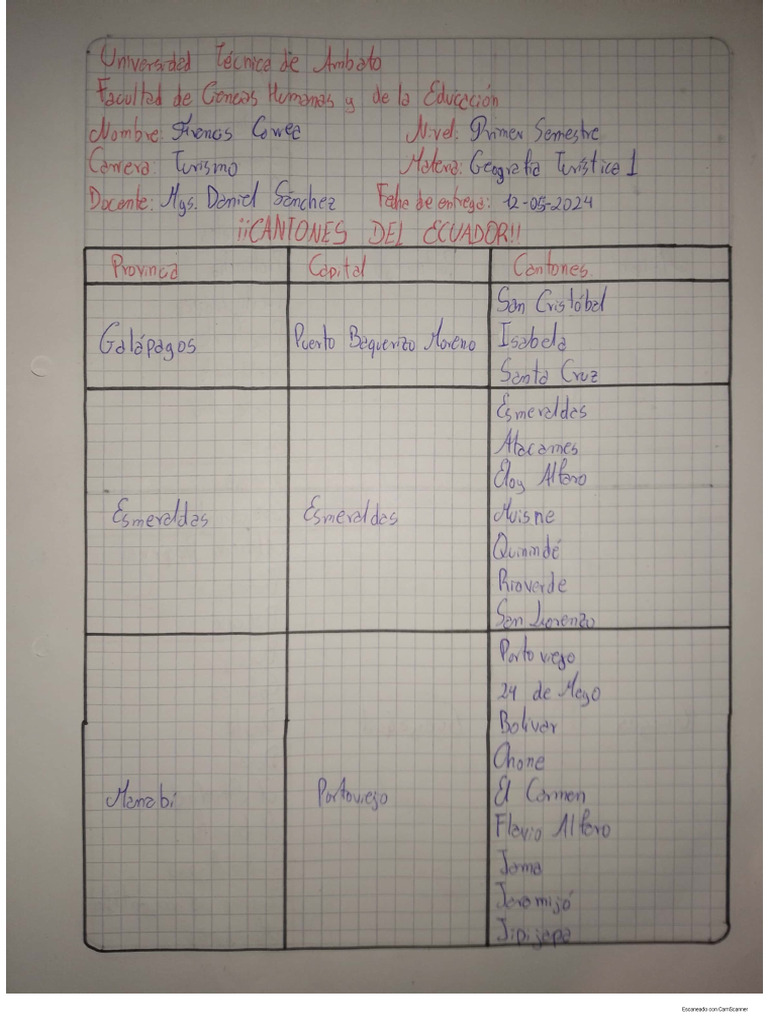 Universidad Técnica de Ambato
Facultad de Ciencias Humanas y de la Educación
Nombre: Francis Correa Nivel: Primer Semestre
Carrera: Turismo Materia: Geografia Turística 1
Docente: Mgs. Daniel Sánchez Fecha de entrega: 12-05-2024
¡¡CANTONES DEL ECUADOR!!
Provincia Capital Cantones
Galápagos Puerto Baquerizo Moreno
San Cristóbal
Isabela
Santa Cruz
Esmeraldas Esmeraldas
Esmeraldas
Atacames
Eloy Alfaro
Muisne
Quinindé
Rioverde
San Lorenzo
Manabí Portoviejo
Portoviejo
24 de Mayo
Bolivar
Chone
El Carmen
Flavio Alfaro
Jama
Jaramijó
Jipijapa
Escaneado con CamScanner